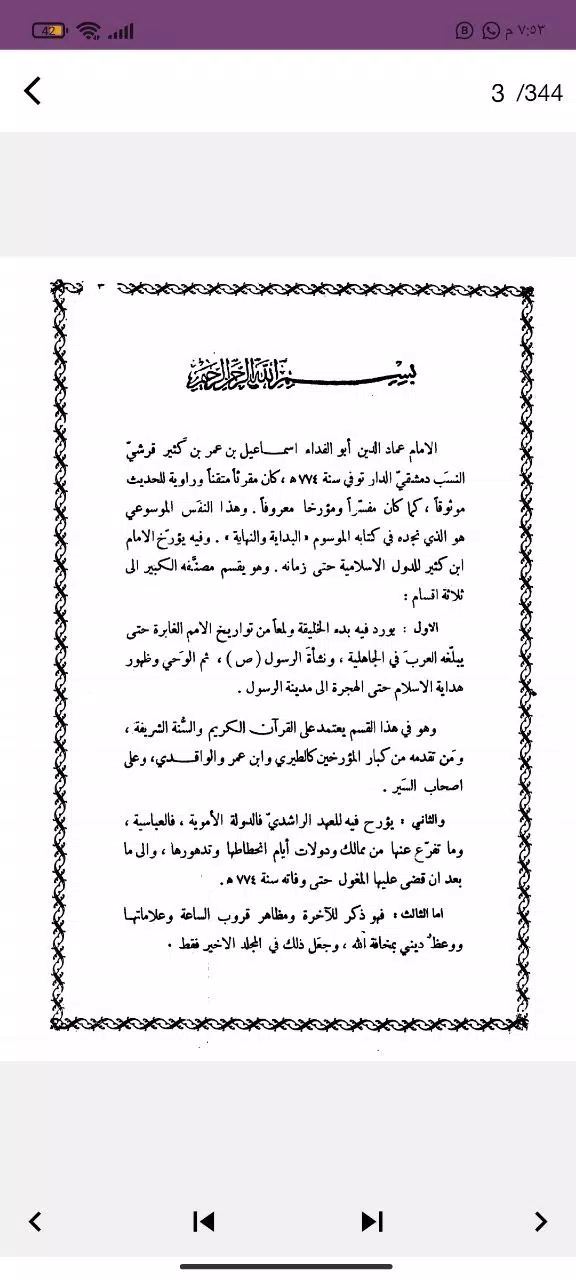 42
٧:٥٣ م
3 /344
٣
بسم الله الرحمن الرحيم
الامام عماد الدين أبو الفداء اسمـاعيل بن عمر بن كثير قرشيّ
النسَب دمشقيّ الدار توفي سنة ٧٧٤ ﻫ، كان مقرئاً متقناً وراوية للحديث
موثوقاً، كما كان مفسّراً ومؤرخا معروفاً. وهذا النفَس الموسوعي
هو الذي نجده في كتابه الموسوم «البداية والنهاية». وفيه يؤرّخ الامام
ابن كثير للدول الاسلامية حتى زمانه. وهو يقسم مصنَّفه الكبير الى
ثلاثة اقسام:
الاول: يورد فيه بدء الخليقة ولمعاً من تواريخ الامم الغابرة حتى
يبلّغه العربَ في الجاهلية، ونشأة الرسول (ص)، ثم الوَحي وظهور
هداية الاسلام حتى الهجرة الى مدينة الرسول.
وهو في هذا القسم يعتمد على القرآن الكريم والسُّنة الشريفة،
ومَن تقدمه من كبار المؤرخين كالطبري وابن عمر والواقـدي، وعلى
اصحاب السَير.
والثاني: يؤرخ فيه للعهد الراشديّ فالدولة الأموية، فالعباسية،
وما تفرّع عنها من ممالك ودولات أيام انحطاطها وتدهورها، والى ما
بعد ان قضى عليها المغول حتى وفاته سنة ٧٧٤ ﻫ.
اما الثالث: فهو ذكر للآخرة ومظاهر قروب الساعة وعلاماتها
ووعظٌ ديني بمخافة الله، وجعَل ذلك في المجلد الاخير فقط.